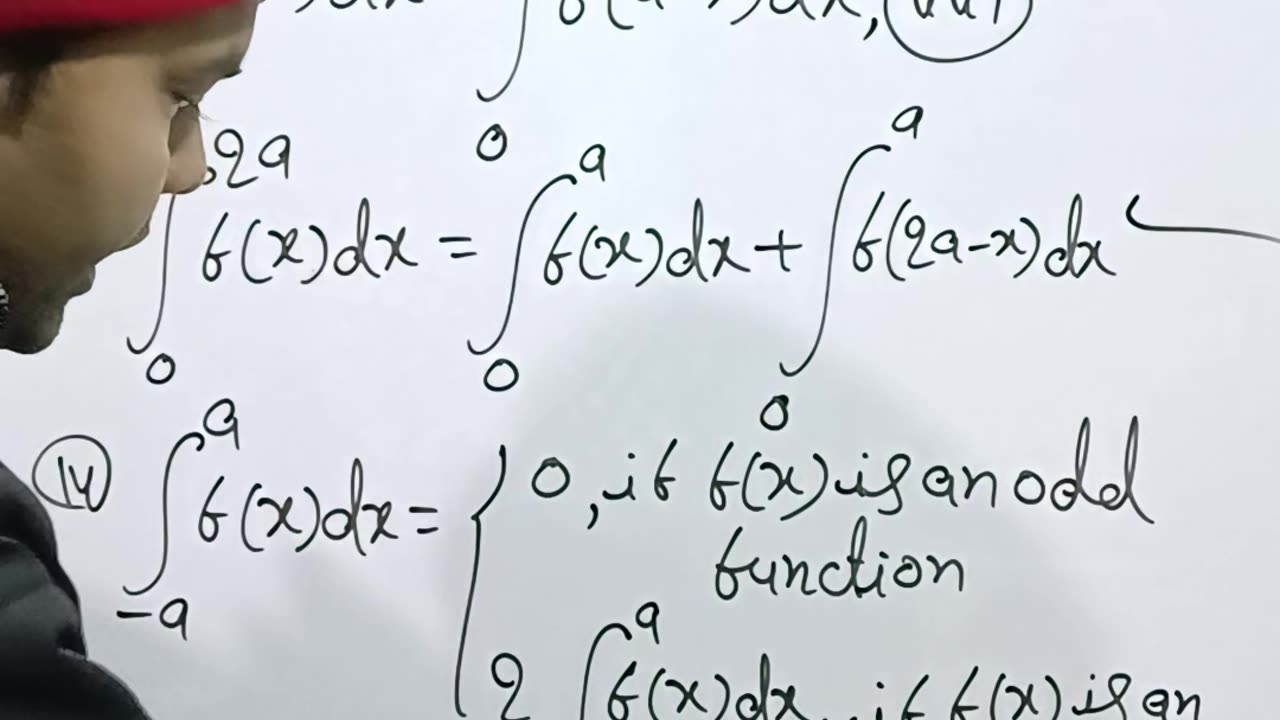 ∫₀ f(a-x)dx,
∫₀²ᵃ f(x)dx = ∫₀ᵃ f(x)dx + ∫₀ᵃ f(2a-x)dx
(iv) ∫₋ₐᵃ f(x)dx = { 0, if f(x) is an odd
function
2 ∫ᵃ f(x)dx, if f(x) is an